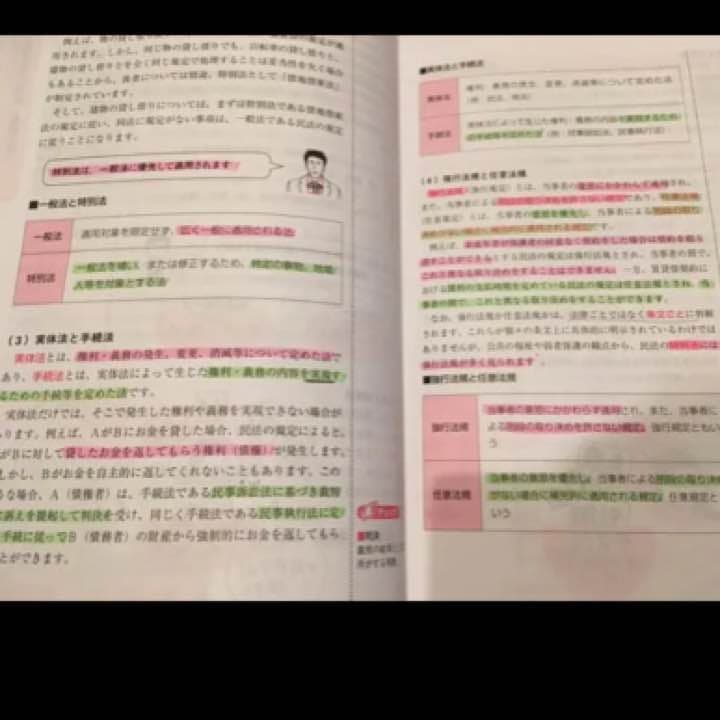 用されます。しかし、同じ物の貸し借りでも、自転車の貸し借りと、
建物の貸し借りとを全く同じ規定で処理することは妥当性を欠く場合
もあることから、後者については別途、特別法として「借地借家法」
が制定されています。
そして、建物の貸し借りについては、まずは特別法である借地借家
法の規定に従い、同法に規定がない事項は、一般法である民法の規定
に従うことになります。
特別法は、一般法に優先して適用されます
■一般法と特別法
一般法
適用対象を限定せず、広く一般に適用される法
特別法
一般法を補い、または修正するため、特定の事物、地域、
人等を対象とする法
(3) 実体法と手続法
実体法とは、権利・義務の発生、変更、消滅等について定めた法で
あり、手続法とは、実体法によって生じた権利・義務の内容を実現す
るための手続等を定めた法です。
実体法だけでは、そこで発生した権利や義務を実現できない場合が
ります。例えば、AがBにお金を貸した場合、民法の規定によると、
がBに対して貸したお金を返してもらう権利（債権）が発生します。
しかし、Bがお金を自主的に返してくれないこともあります。この
うな場合、A（債権者）は、手続法である民事訴訟法に基づき裁判
訴えを提起して判決を受け、同じく手続法である民事執行法に定
手続に従ってB（債務者）の財産から強制的にお金を返してもら
とができます。
■実体法と手続法
実体法
権利・義務の発生、変更、消滅等について定めた法
(例：民法、商法)
手続法
実体法によって生じた権利・義務の内容を実現するため
の手続等を定めた法（例：民事訴訟法、民事執行法）
(4) 強行法規と任意法規
強行法規（強行規定）とは、当事者の意思にかかわらず適用され、
また、当事者による別段の取り決めを許さない規定であり、任意法規
（任意規定）とは、当事者の意思を優先し、当事者による別段の取り
決めがない場合に補充的に適用される規定です。
なお、強行法規か任意法規かは、法律ごとではなく条文ごとに判断
されます。これらが個々の条文上に具体的に明示されているわけでは
ありませんが、公共の福祉や弱者保護の観点から、民法の特別法には
強行法規が多く見られます。
■強行法規と任意法規
強行法規
当事者の意思にかかわらず適用され、また、当事者に
よる別段の取り決めを許さない規定。強行規定ともい
う
任意法規
当事者の意思を優先し、当事者による別段の取り決め
がない場合に補充的に適用される規定。任意規定とも
いう